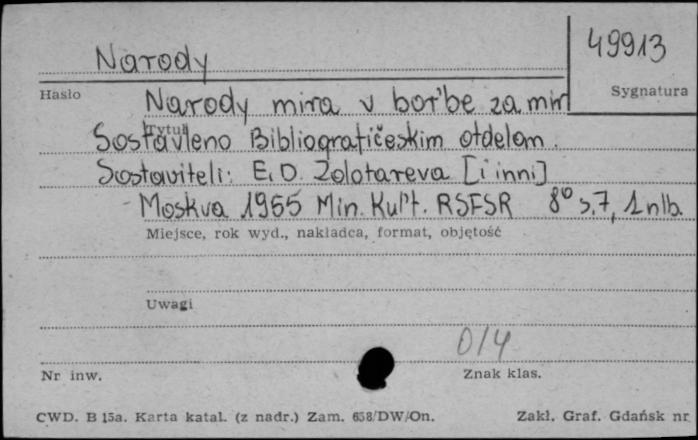 Narody
49913
Hasło
Sygnatura
Narody mira v bor'be za mir
Tytuł
Sostavleno Bibliografičeskim otdelom.
Sostaviteli: E. D. Zolotareva [i inni]
Moskva 1955 Min. Kul't. RSFSR 8° s. 7, 1 nlb.
Miejsce, rok wyd., nakładca, format, objętość
Uwagi
014
Nr inw.
Znak klas.
CWD. B 15a. Karta katal. (z nadr.) Zam. 658/DW/On.
Zakł. Graf. Gdańsk nr